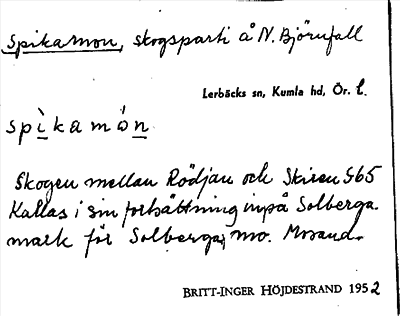 Spikamon, skogsparti å N. Björnfall
Lerbäcks sn, Kumla hd, Ör. l.
spìkamón.
Skogen mellan Rödjan och Skiren 565
Kallas i sin fortsättning inpå Solberga
mark för Solberga mo.
BRITT-INGER HÖJDESTRAND 1952